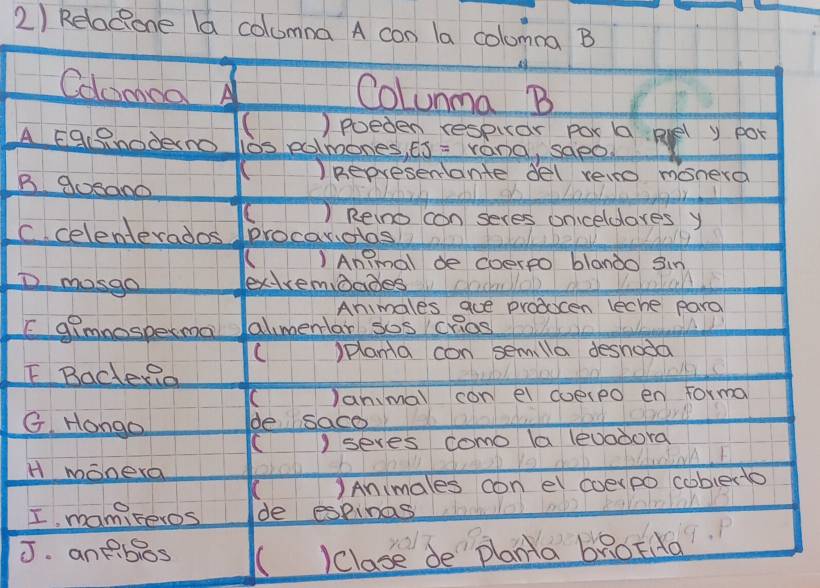 2) Relacione la columna A con la columna B
Columna A
Colunma B
A Equinoderno
( ) pueden respirar por la piel y por
los pulmones, EJ = rana, sapo.
B. gusano
( ) Representante del reino mónera
C. celenterados
( ) Reino con seres unicelulares y
procariotas
D. musgo
( ) Animal de cuerpo blando sin
extremidades
E gimnosperma
Animales que producen leche para
alimentar sus crias
F Bacteria
( ) Planta con semilla desnuda
G. Hongo
( ) animal con el cuerpo en forma
de saco
H mónera
( ) seres como la levadura
I. mamiferos
( ) Animales con el cuerpo cubierto
de espinas
J. anfibios
( ) Clase de planta briofita